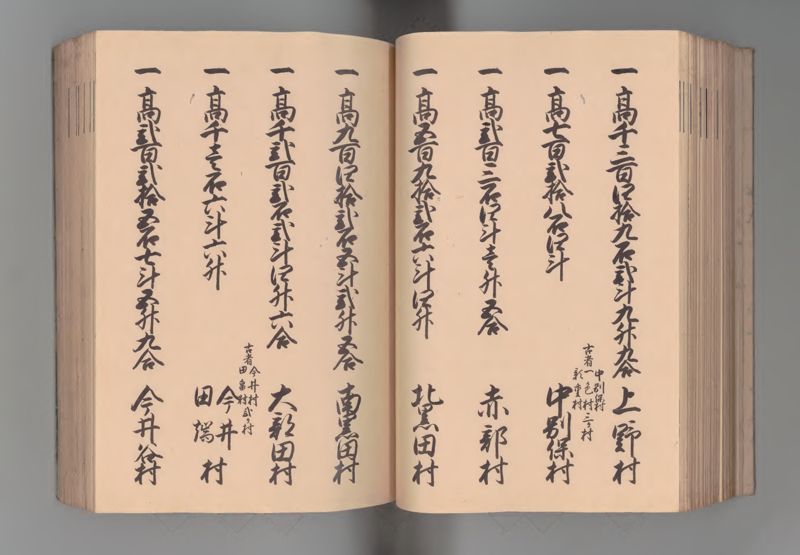 一 高千三百四拾九石弐斗九升九合 上野村
古者 中別保村
一色村 三ヶ村
新堂村
一 高七百弐拾八石四斗 中別保村
一 高弐百三石四斗壱升五合 赤部村
一 高五百九拾弐石六斗四升 北黒田村
一 高九百四拾弐石五斗弐升五合 南黒田村
一 高千弐百弐石弐斗四升六合 大部田村
古者 今井村
田畠村 弐ヶ村
一 高千壱石六斗六升 今井村
田端
一 高弐百弐拾五石七斗五升九合 今井谷村